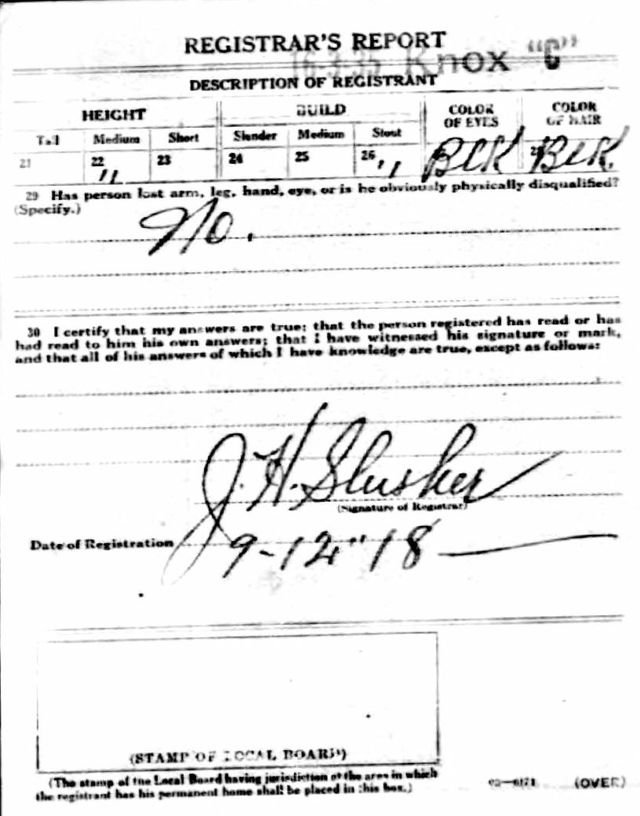 REGISTRAR'S REPORT
16-3-35 Knox "C"
DESCRIPTION OF REGISTRANT
HEIGHT BUILD COLOR OF EYES COLOR OF HAIR
Tall Medium Short Slender Medium Stout
21 22 " 23 24 25 26 " BLK BLK.
29 Has person lost arm, leg, hand, eye, or is he obviously physically disqualified?
(Specify.)
No.
30 I certify that my answers are true; that the person registered has read or has
had read to him his own answers; that I have witnessed his signature or mark,
and that all of his answers of which I have knowledge are true, except as follows:
J. H. Slusher
(Signature of Registrar)
Date of Registration 9-12"18
(STAMP OF LOCAL BOARD)
(The stamp of the Local Board having jurisdiction of the area in which
the registrant has his permanent home shall be placed in this box.)
(OVER)